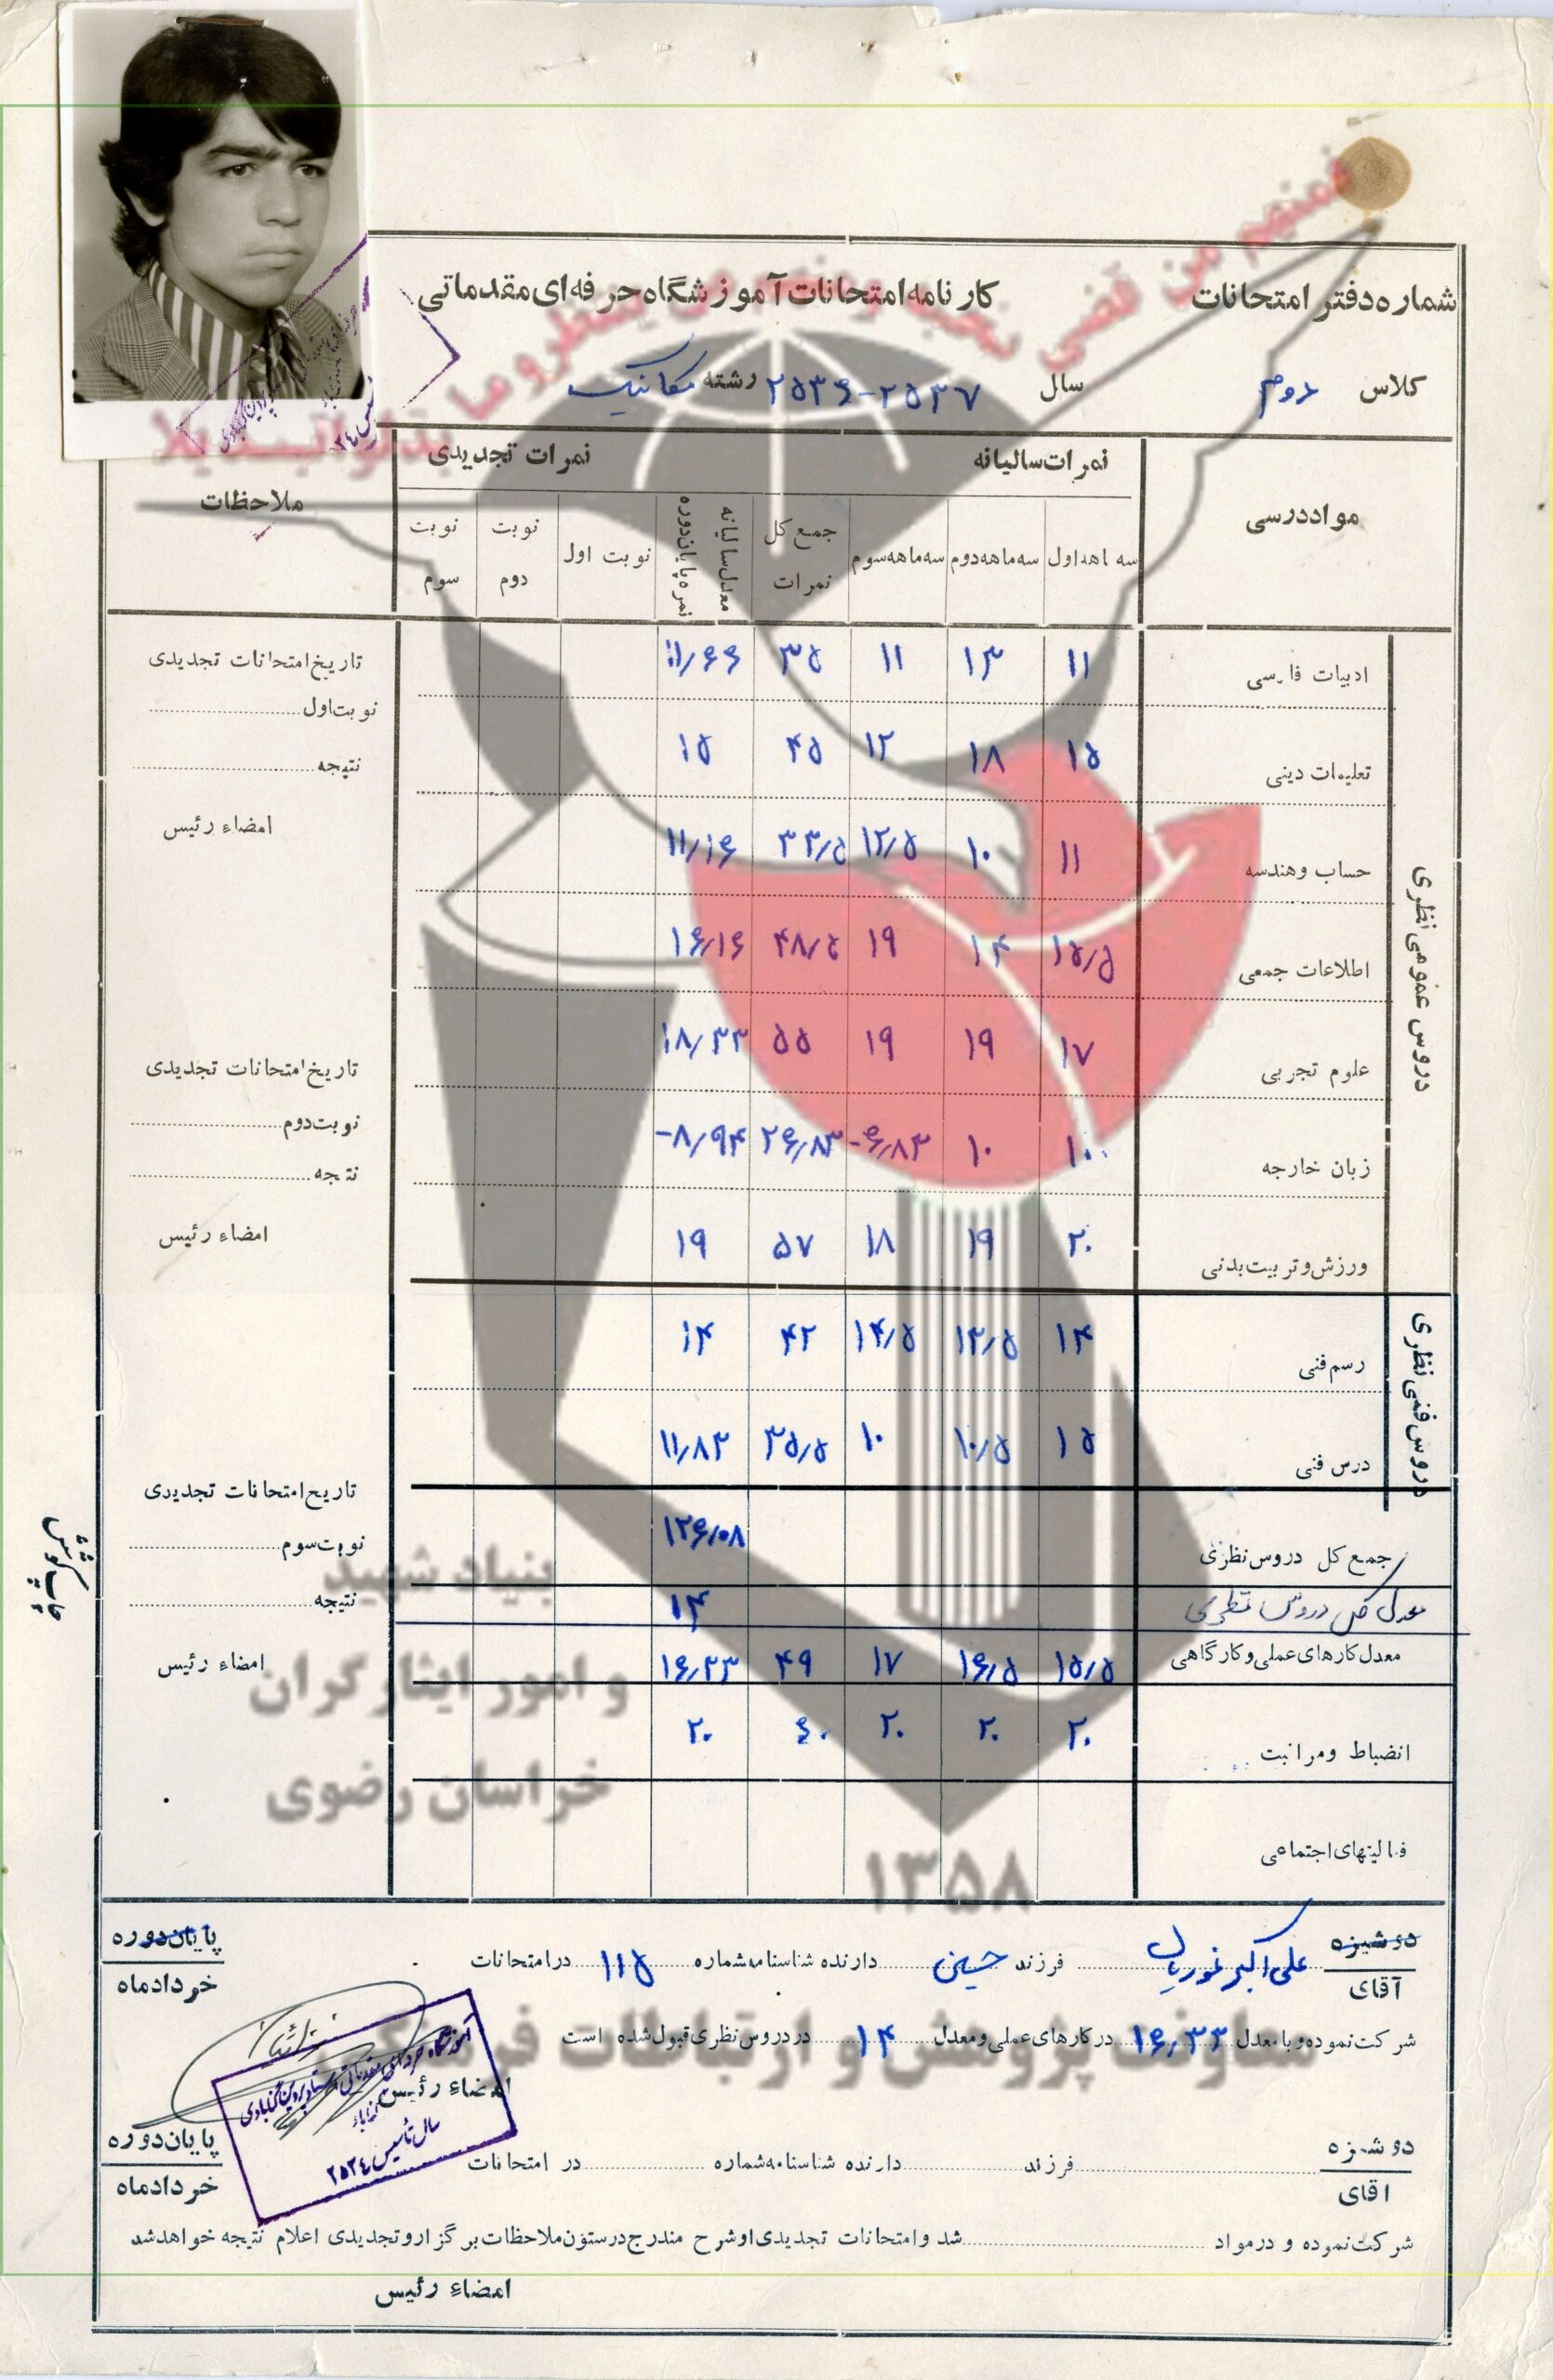 شماره دفتر امتحانات
کارنامه امتحانات آموزشگاه حرفه‌ای مقدماتی
کلاس دوم سال ۲۵۳۶-۲۵۳۷ رشته مکانیک
مواد درسی نمرات سالیانه نمرات تجدیدی ملاحظات
سه ماهه اول سه ماهه دوم سه ماهه سوم جمع کل نمرات معدل سالیانه نمره پایان دوره نوبت اول نوبت دوم نوبت سوم
دروس عمومی نظری
ادبیات فارسی ۱۱ ۱۳ ۱۱ ۳۵ ۱۱/۶۶
تعلیمات دینی ۱۵ ۱۸ ۱۲ ۴۵ ۱۵
حساب و هندسه ۱۱ ۱۰ ۱۲/۵ ۳۳/۵ ۱۱/۱۶
اطلاعات جمعی ۱۵/۵ ۱۴ ۱۹ ۴۸/۵ ۱۶/۱۶
علوم تجربی ۱۷ ۱۹ ۱۹ ۵۵ ۱۸/۳۳
زبان خارجه ۱۰ ۱۰ -۶/۸۳ ۲۶/۸۳ -۸/۹۴
ورزش و تربیت بدنی ۲۰ ۱۹ ۱۸ ۵۷ ۱۹
دروس فنی نظری
رسم فنی ۱۴ ۱۳/۵ ۱۴/۵ ۴۲ ۱۴
درس فنی ۱۵ ۱۰/۵ ۱۰ ۳۵/۵ ۱۱/۸۳
جمع کل دروس نظری ۱۲۶/۰۸
معدل کل دروس نظری ۱۴
معدل کارهای عملی و کارگاهی ۱۵/۵ ۱۶/۵ ۱۷ ۴۹ ۱۶/۳۳
انضباط و مراقبت ۲۰ ۲۰ ۲۰ ۶۰ ۲۰
فعالیتهای اجتماعی
تاریخ امتحانات تجدیدی
نوبت اول
نتیجه
امضاء رئیس
تاریخ امتحانات تجدیدی
نوبت دوم
نتیجه
امضاء رئیس
تاریخ امتحانات تجدیدی
نوبت سوم
نتیجه
امضاء رئیس
دوشیزه
آقای علی اکبر غوریان فرزند حسین دارنده شناسنامه شماره ۱۱۵ در امتحانات
پایان دوره
خرداد ماه
شرکت نموده و با معدل ۱۶/۳۳ در کارهای عملی و معدل ۱۴ در دروس نظری قبول شده است
امضاء رئیس
آموزشگاه حرفه‌ای مقدماتی
سال تأسیس ۲۵۳۴
دوشیزه
آقای فرزند دارنده شناسنامه شماره در امتحانات
پایان دوره
خرداد ماه
شرکت نموده و در مواد شد و امتحانات تجدیدی او شرح مندرج در ستون ملاحظات برگزار و تجدیدی اعلام نتیجه خواهد شد
امضاء رئیس
فمنهم من قضی نحبه و منهم من ینتظر و ما بدلوا تبدیلا
بنیاد شهید
و امور ایثارگران
خراسان رضوی
۱۳۵۸
معاونت پژوهش و ارتباطات فرهنگی